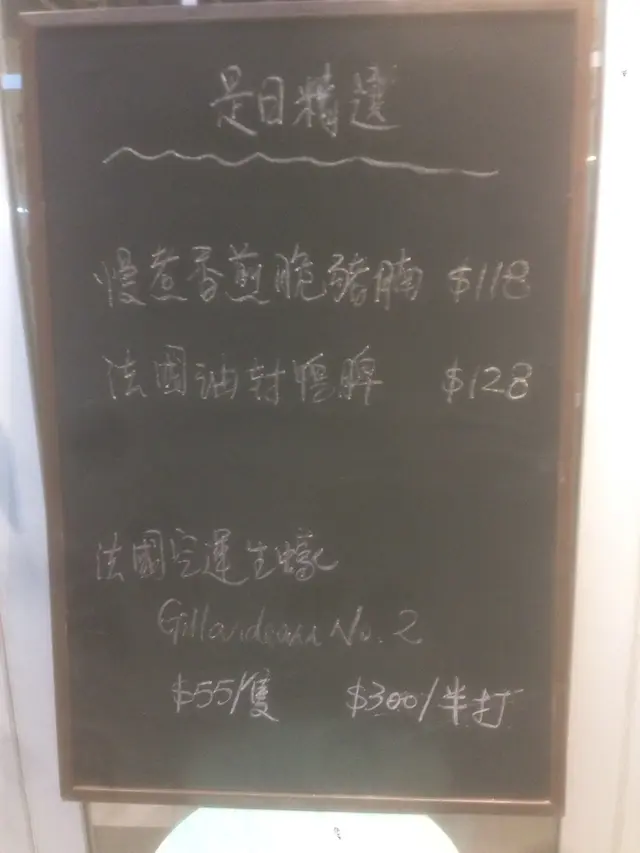 是日精選
慢煮香煎脆豬腩 $118
法國油封鴨脾 $128
法國空運生蠔
Gillardeau No. 2
$55/隻 $300/半打